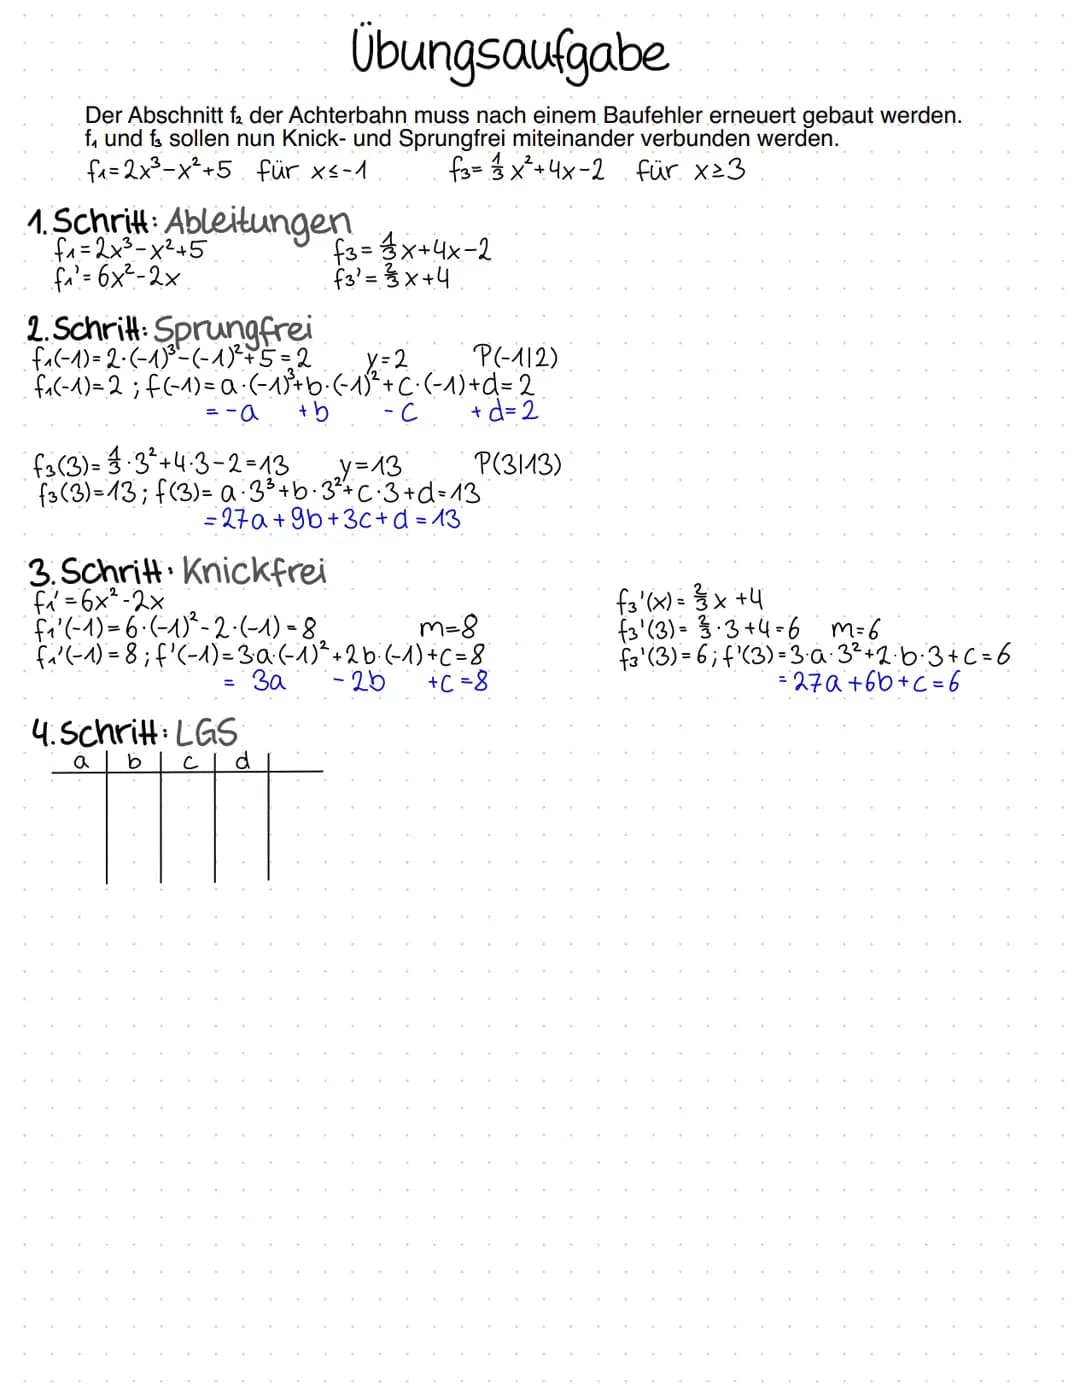 Übungsaufgabe
Der Abschnitt f₂ der Achterbahn muss nach einem Baufehler erneuert gebaut werden.
f₁ und f₃ sollen nun Knick- und Sprungfrei miteinander verbunden werden.
f₁=2x³-x²+5 für x≤-1 f₃=⅓x²+4x-2 für x≥3
1. Schritt: Ableitungen
f₁=2x³-x²+5 f₃=⅓x+4x-2
f₁'=6x²-2x f₃'=⅔x+4
2. Schritt: Sprungfrei
f₁(-1)=2·(-1)³-(-1)²+5=2 y=2 P(-1|2)
f₁(-1)=2; f(-1)=a·(-1)³+b·(-1)²+c·(-1)+d=2
=-a +b -c +d=2
f₃(3)=⅓·3²+4·3-2=13 y=13 P(3|13)
f₃(3)=13; f(3)=a·3³+b·3²+c·3+d=13
=27a+9b+3c+d=13
3. Schritt: Knickfrei
f₁'=6x²-2x
f₁'(-1)=6·(-1)²-2·(-1)=8 m=8
f₁'(-1)=8; f'(-1)=3a·(-1)²+2b·(-1)+c=8
= 3a -2b +c=8
f₃'(x)=⅔x+4
f₃'(3)=⅔·3+4=6 m=6
f₃'(3)=6; f'(3)=3·a·3²+2·b·3+c=6
=27a+6b+c=6
4. Schritt: LGS
a b c d